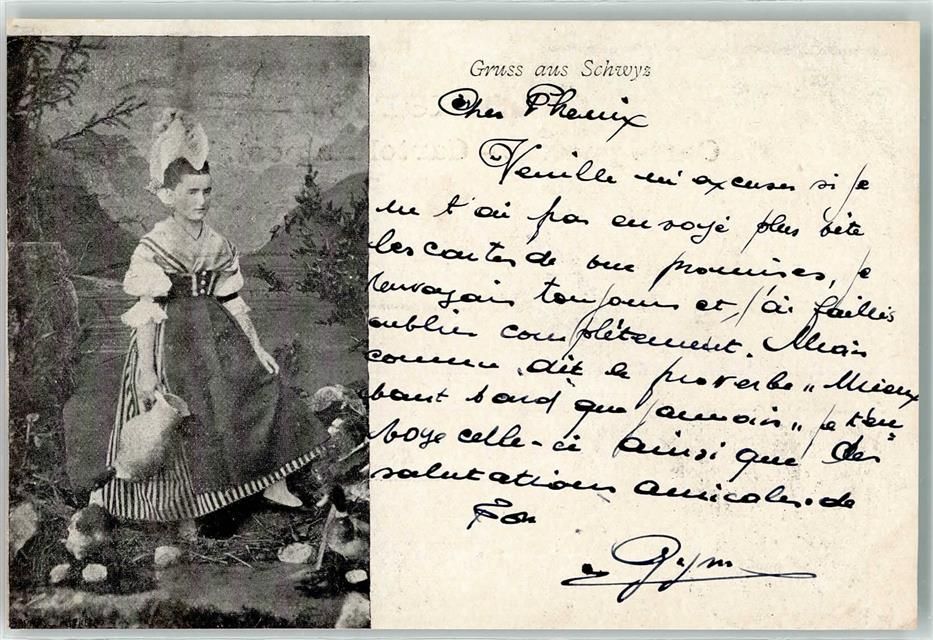 Gruss aus Schwyz
Cher Phenix
Veuille m'excuser si je
ne t'ai pas envoyé plus tôt
les cartes de vue promises, je
renvoyais toujours et j'ai faillis
oublier complètement. Mais
comme dit le proverbe „Mieux
vaut tard que jamais„ je t'en-
voye celle-ci ainsi que des
salutations amicales de
Ton